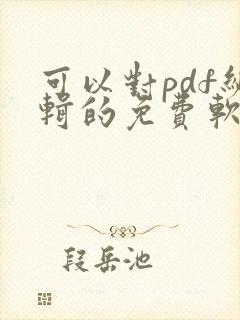 可以對pdf編
輯的免費軟
段岳池